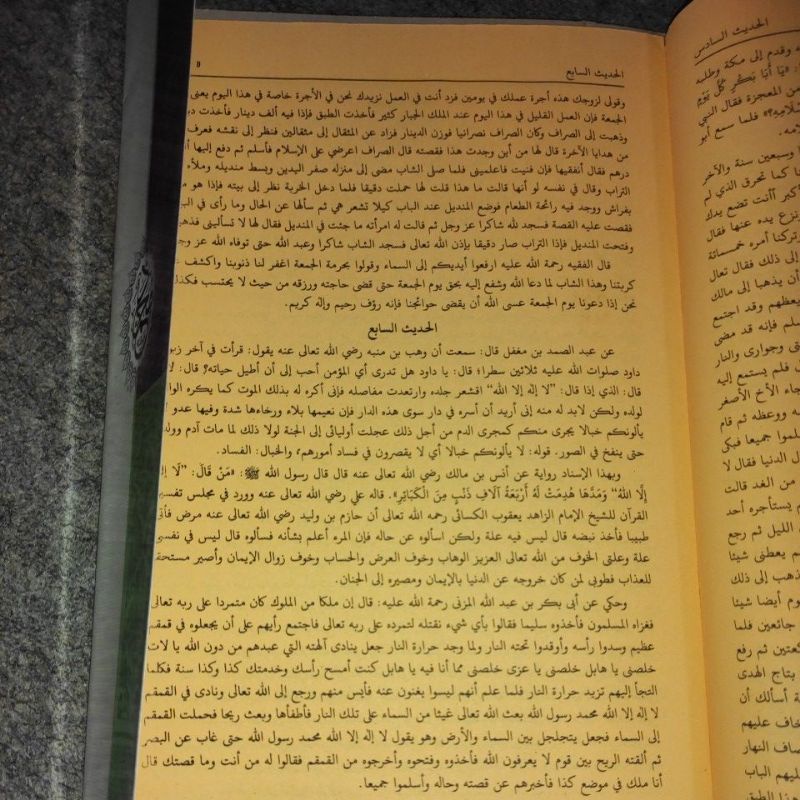 الحديث السابع
وقولى لزوجك هذه أجرة عملك في يومين فزد أنت في العمل نزيدك نحن في الأجرة خاصة في هذا اليوم يعنى
الجمعة فإن العمل القليل في هذا اليوم عند الملك الجبار كثير فأخذت الطبق فإذا فيه ألف دينار فأخذت
وذهبت إلى الصراف وكان الصراف نصرانيا فوزن الدينار فزاد عن المثقال إلى مثقالين فنظر إلى نقشه فعرف
من هدايا الآخرة قال لها من أين وجدت هذا فقصته قال الصراف اعرضي على الإسلام فأسلم ثم دفع إليها
درهم فقال أنفقيها فإن فنيت فاعلمينى فلما صلى الشاب مضى إلى منزله صفر اليدين وبسط منديله وملأه
التراب وقال في نفسه لو أنها قالت ما هذا قلت لها حملت دقيقا فلما دخل الخربة نظر إلى بيته فإذا هو
بفراش ووجد فيه رائحة الطعام فوضع المنديل عند الباب كيلا تشعر هي ثم سألها عن الحال وما رأى في
فقصت عليه القصة فسجد لله شاكرا عز وجل ثم قالت له امرأته ما جئت في المنديل فقال لها لا تسأليني
وفتحت المنديل فإذا التراب صار دقيقا بإذن الله تعالى فسجد الشاب شاكرا وعبد الله حتى توفاه الله عز
قال الفقيه رحمة الله عليه ارفعوا أيديكم إلى السماء وقولوا بحرمة الجمعة اغفر لنا ذنوبنا واكشف
كربتنا وهذا الشاب لما دعا الله وشفع إليه بحق يوم الجمعة حتى قضى حاجته ورزقه من حيث لا يحتسب
نحن إذا دعونا يوم الجمعة عسى الله أن يقضى حوائجنا فإنه رؤف رحيم وإله كريم.
الحديث السابع
عن عبد الصمد بن مغفل قال: سمعت أن وهب بن منبه رضي الله تعالى عنه يقول: قرأت في آخر
داود صلوات الله عليه ثلاثين سطرا؛ قال: يا داود هل تدرى أي المؤمن أحب إلى أن أطيل حياته؟ قال:
قال: الذي إذا قال: ”لا إله إلا الله“ اقشعر جلده وارتعدت مفاصله فإنى أكره له بذلك الموت كما يكره
لولده ولكن لابد له منه إنى أريد أن أسره في دار سوى هذه الدار فإن نعيمها بلاء ورخاءها شدة وفيها عدو
يألونكم خبالا يجرى منكم كمجرى الدم من أجل ذلك عجلت أوليائى إلى الجنة لولا ذلك لما مات آدم
حتى ينفخ في الصور. قوله: لا يألونكم خبالا أي لا يقصرون في فساد أموركم، والخبال: الفساد.
وبهذا الإسناد رواية عن أنس بن مالك رضي الله تعالى عنه قال قال رسول الله ﷺ: «مَنْ قَالَ: ”لَا
إِلَّا اللهُ“ وَمَدَّهَا هُدِمَتْ لَهُ أَرْبَعَةُ آلَافِ ذَنْبٍ مِنَ الْكَبَائِرِ». قاله علي رضي الله تعالى عنه وورد في مجلس
القرآن للشيخ الإمام الزاهد يعقوب الكسائى رحمه الله تعالى أن حازم بن وليد رضي الله تعالى عنه مرض
طبيبا فأخذ نبضه قال ليس فيه علة ولكن اسألوه عن حاله فإن المرء أعلم بشأنه فسألوه قال ليس في
علة وعلتى الخوف من الله تعالى العزيز الوهاب وخوف العرض والحساب وخوف زوال الإيمان وأصير
للعذاب فطوبى لمن كان خروجه عن الدنيا بالإيمان ومصيره إلى الجنان.
وحكي عن أبى بكر بن عبد الله المزنى رحمة الله عليه: قال إن ملكا من الملوك كان متمردا على ربه تعالى
فغزاه المسلمون فأخذوه سليما فقالوا بأي شيء نقتله لتمرده على ربه تعالى فاجتمع رأيهم على أن يجعلوه في قمقم
عظيم وسدوا رأسه وأوقدوا تحته النار ولما وجد حرارة النار جعل ينادى آلهته التي عبدهم من دون الله يا لات
خلصنى يا هابل خلصنى يا عزى خلصنى مما أنا فيه يا هابل كنت أمسح رأسك وخدمتك كذا وكذا سنة فكلما
التجأ إليهم تزيد حرارة النار فلما علم أنهم ليسوا يغنون عنه فأيس منهم ورجع إلى الله تعالى ونادى في القمقم
لا إله إلا الله محمد رسول الله بعث الله تعالى غيثا من السماء على تلك النار فأطفأها وبعث ريحا فحملت القمقم
إلى السماء فجعل يتجلجل بين السماء والأرض وهو يقول لا إله إلا الله محمد رسول الله حتى غاب عن البصر
ثم ألقته الريح بين قوم لا يعرفون الله فأخذوه وفتحوه وأخرجوه من القمقم فقالوا له من أنت وما قصتك قال
أنا ملك في موضع كذا فأخبرهم عن قصته وحاله وأسلموا جميعا.
الحديث السادس
وقدم إلى مكة وطلبه
من المعجزة فقال النبي
فلما سمع أبو
وسبعين سنة والآخر
كما تحرق الذي لم
أكبر أأنت تضع يدك
ونزع يده عنها فقال
وتركنا أمره خمسمائة
إلى ذلك فقال تعال
أن يذهبا إلى مالك
يعظهم وقد اجتمع
فإنه قد مضى
وجوارى والنار
فلم يستمع إليه
جاء الأخ الأصغر
ووعظه ثم قام
جميعا فبكى
الدنيا فقال لا
من الغد قالت
يستأجره أحد
الليل ثم رجع
يعطنى شيئا
ذهب إلى ذلك
أيضا شيئا
جائعين فلما
ثم رفع
بتاج الهدى
أسألك أن
عليهم
النهار
الباب
هذا الطبق